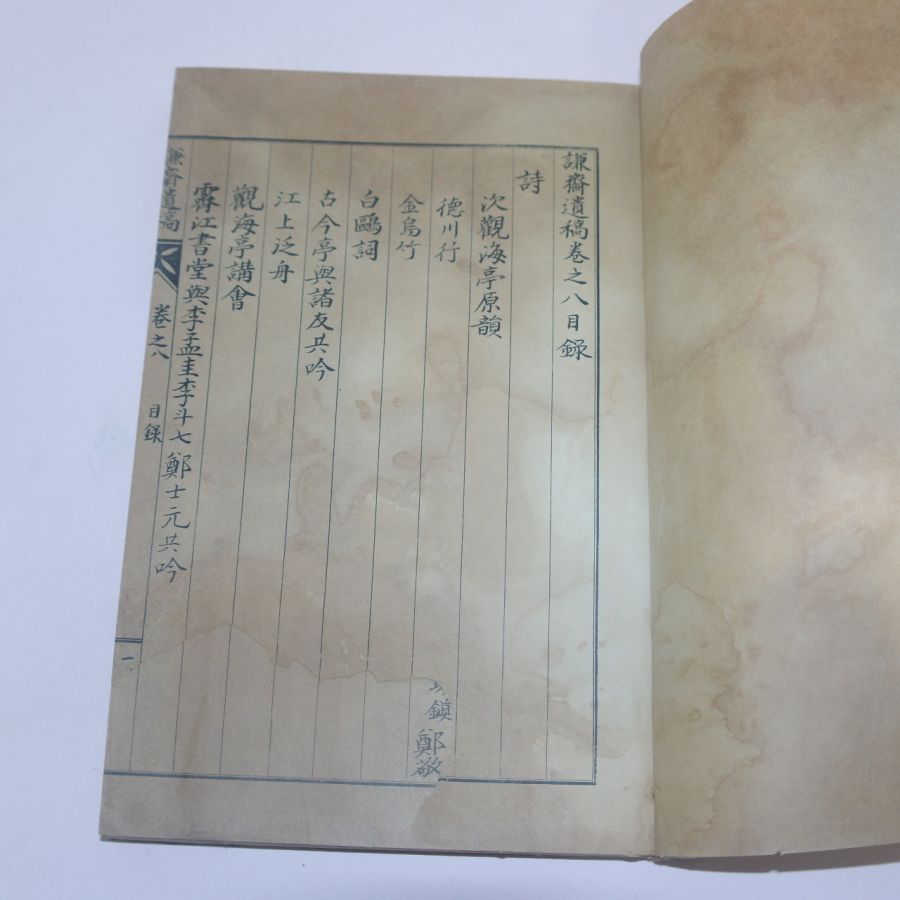 謙齋遺稿卷之八目錄
詩
次觀海亭原韻
德川行
金烏竹
白鷗詞
古今亭與諸友共吟
江上泛舟
觀海亭講會
霽江書堂與李孟圭李斗七鄭士元共吟
謙齋遺稿
卷之八
目錄
一
鎭鄭敬